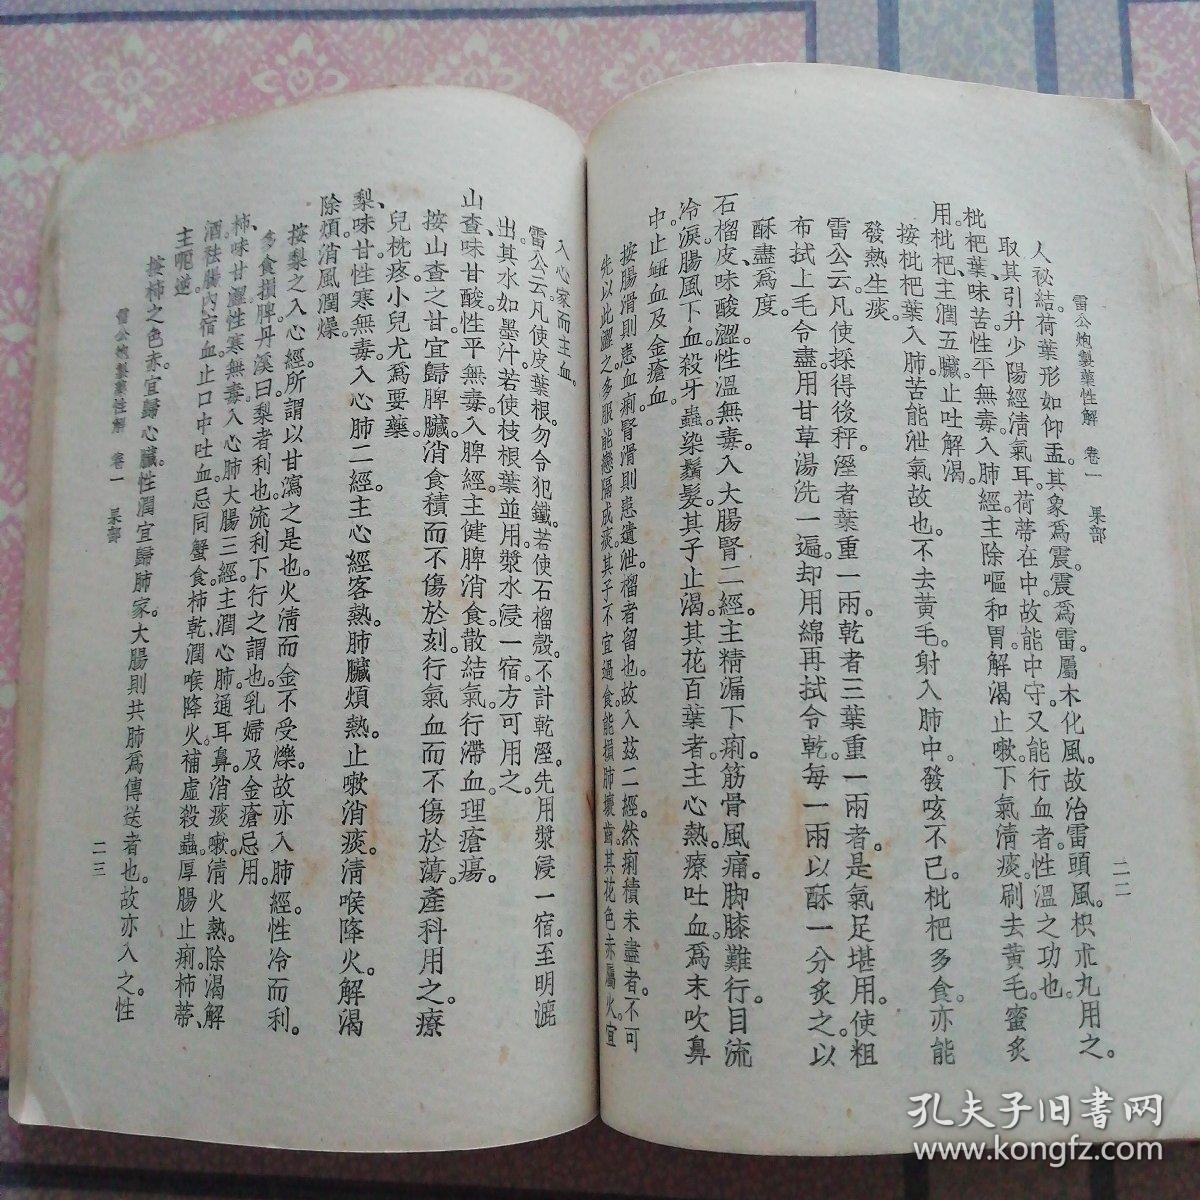 雷公炮製藥性解　卷一　果部
二二
人秘結。荷葉形如仰盂。其象爲震。震爲雷。屬木化風。故治雷頭風。枳朮丸用之。
取其引升少陽經清氣耳。荷蒂在中。故能中守。又能行血者。性溫之功也。
枇杷葉、味苦。性平無毒。入肺經。主除嘔和胃。解渴止嗽。下氣清痰。刷去黃毛。蜜炙
用。枇杷、主潤五臟。止吐解渴。
按枇杷葉入肺。苦能泄氣故也。不去黃毛。射入肺中。發咳不已。枇杷多食。亦能
發熱生痰。
雷公云。凡使採得後秤。溼者葉重一兩。乾者三葉重一兩者。是氣足堪用。使粗
布拭上毛令盡。用甘草湯洗一遍。却用綿再拭令乾。每一兩以酥一分炙之。以
酥盡爲度。
石榴皮、味酸澀。性溫無毒。入大腸腎二經。主精漏下痢。筋骨風痛。脚膝難行。目流
冷淚。腸風下血。殺牙蟲。染鬚髮。其子止渴。其花百葉者。主心熱。療吐血。爲末吹鼻
中。止衄血及金瘡血。
按腸滑則患血痢。腎滑則患遺泄。榴者留也。故入茲二經。然痢積未盡者。不可
先以此澀之。多服能戀隔成痰。其子不宜過食。能損肺壞齒。其花色赤屬火。宜
入心家而主血。
雷公云。凡使皮葉根。勿令犯鐵。若使石榴殼。不計乾溼。先用漿浸一宿。至明漉
出。其水如墨汁。若使枝根葉。並用漿水浸一宿。方可用之。
山查、味甘酸。性平無毒。入脾經。主健脾消食。散結氣。行滯血。理瘡瘍。
按山查之甘。宜歸脾臟。消食積而不傷於刻。行氣血而不傷於蕩。產科用之。療
兒枕疼。小兒尤爲要藥。
梨、味甘。性寒無毒。入心肺二經。主心經客熱。肺臟煩熱。止嗽消痰。清喉降火。解渴
除煩。消風潤燥。
按梨之入心經。所謂以甘瀉之是也。火清而金不受爍。故亦入肺經。性冷而利。
多食損脾。丹溪曰。梨者利也。流利下行之謂也。乳婦及金瘡忌用。
柿、味甘澀。性寒無毒。入心肺大腸三經。主潤心肺。通耳鼻。消痰嗽。清火熱。除渴解
酒。祛腸內宿血。止口中吐血。忌同蟹食。柿乾、潤喉降火。補虛殺蟲。厚腸止痢。柿蒂、
主呃逆
按柿之色赤。宜歸心臟。性潤宜歸肺家。大腸則共肺爲傳送者也。故亦入之。性
雷公炮製藥性解　卷一　果部
二三
孔夫子旧书网
www.kongfz.com